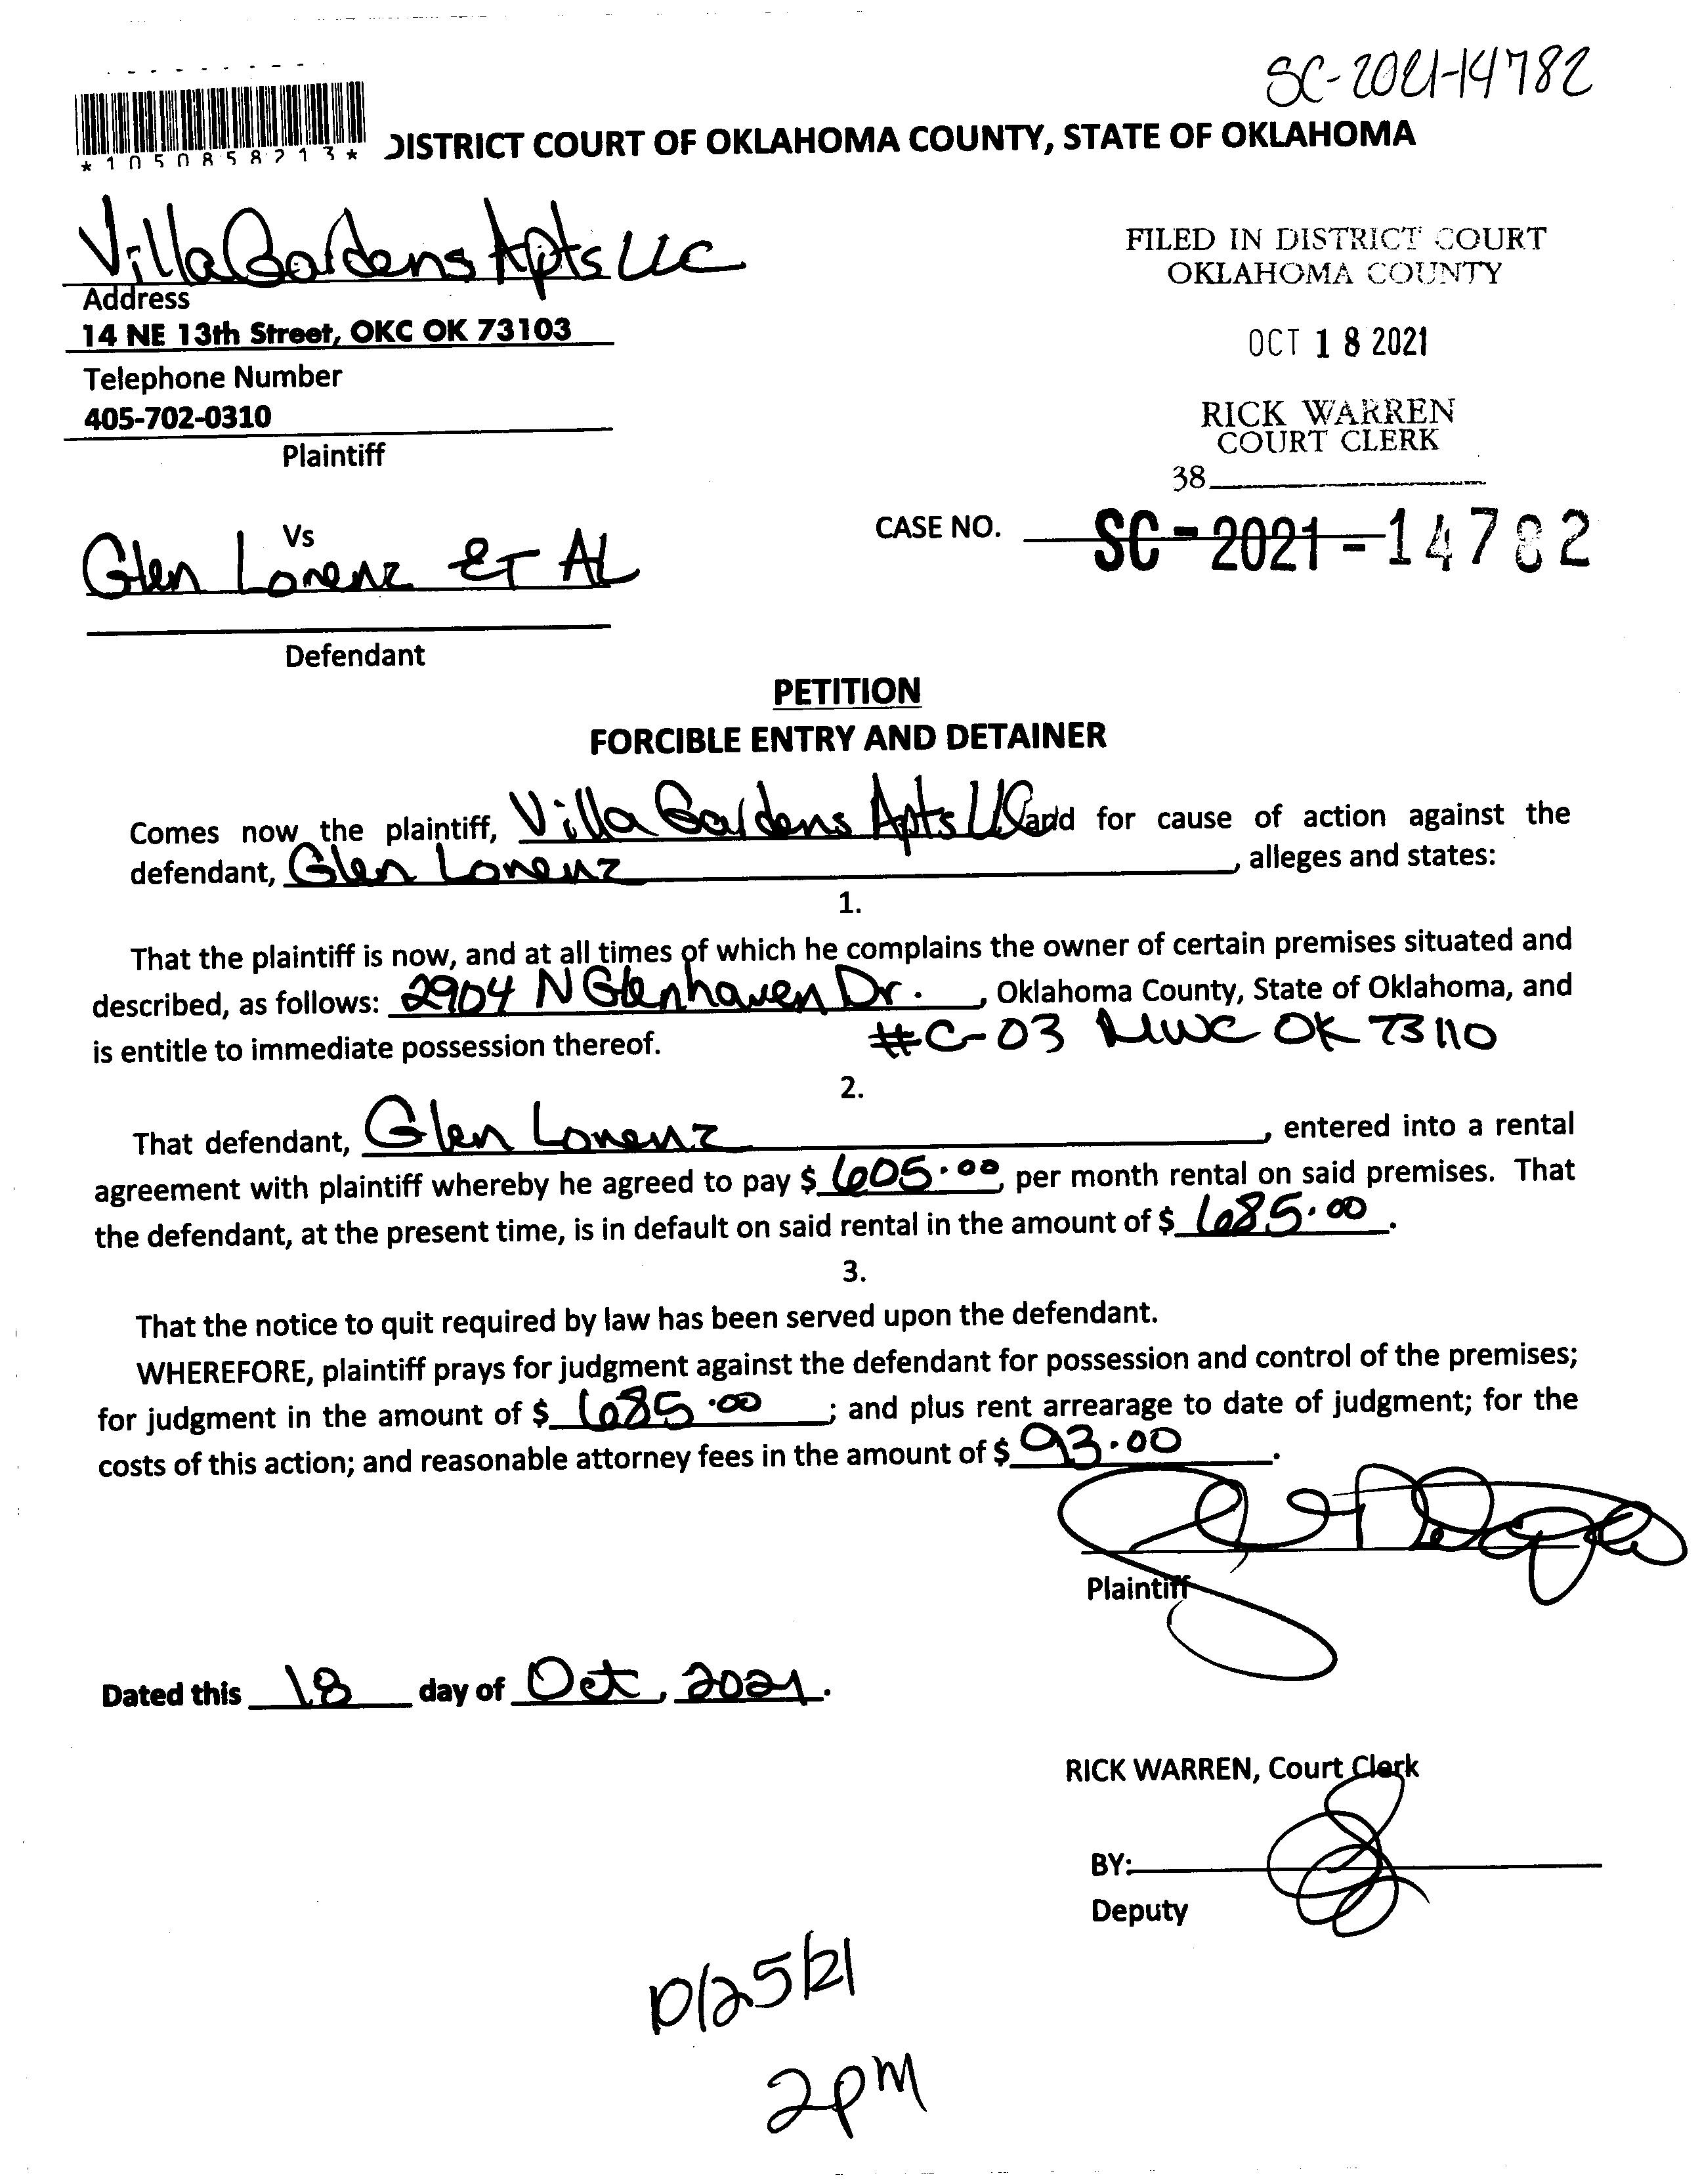 SC-2021-14782
*1050858213*
DISTRICT COURT OF OKLAHOMA COUNTY, STATE OF OKLAHOMA
Villa Gardens Apts LLC
Address
14 NE 13th Street, OKC OK 73103
Telephone Number
405-702-0310
Plaintiff
FILED IN DISTRICT COURT
OKLAHOMA COUNTY
OCT 18 2021
RICK WARREN
COURT CLERK
38
Vs
Glen Lorenz ET AL
Defendant
CASE NO. SC-2021-14782
PETITION
FORCIBLE ENTRY AND DETAINER
Comes now the plaintiff, Villa Gardens Apts LLC and for cause of action against the
defendant, Glen Lorenz, alleges and states:
1.
That the plaintiff is now, and at all times of which he complains the owner of certain premises situated and
described, as follows: 2904 N Glenhaven Dr., Oklahoma County, State of Oklahoma, and
is entitle to immediate possession thereof. #C-03 MWC OK 73110
2.
That defendant, Glen Lorenz, entered into a rental
agreement with plaintiff whereby he agreed to pay $ 605.00, per month rental on said premises. That
the defendant, at the present time, is in default on said rental in the amount of $ 685.00.
3.
That the notice to quit required by law has been served upon the defendant.
WHEREFORE, plaintiff prays for judgment against the defendant for possession and control of the premises;
for judgment in the amount of $ 685.00; and plus rent arrearage to date of judgment; for the
costs of this action; and reasonable attorney fees in the amount of $ 93.00.
Plaintiff
Dated this 18 day of Oct, 2021.
RICK WARREN, Court Clerk
BY:
Deputy
10/25/21
2pm